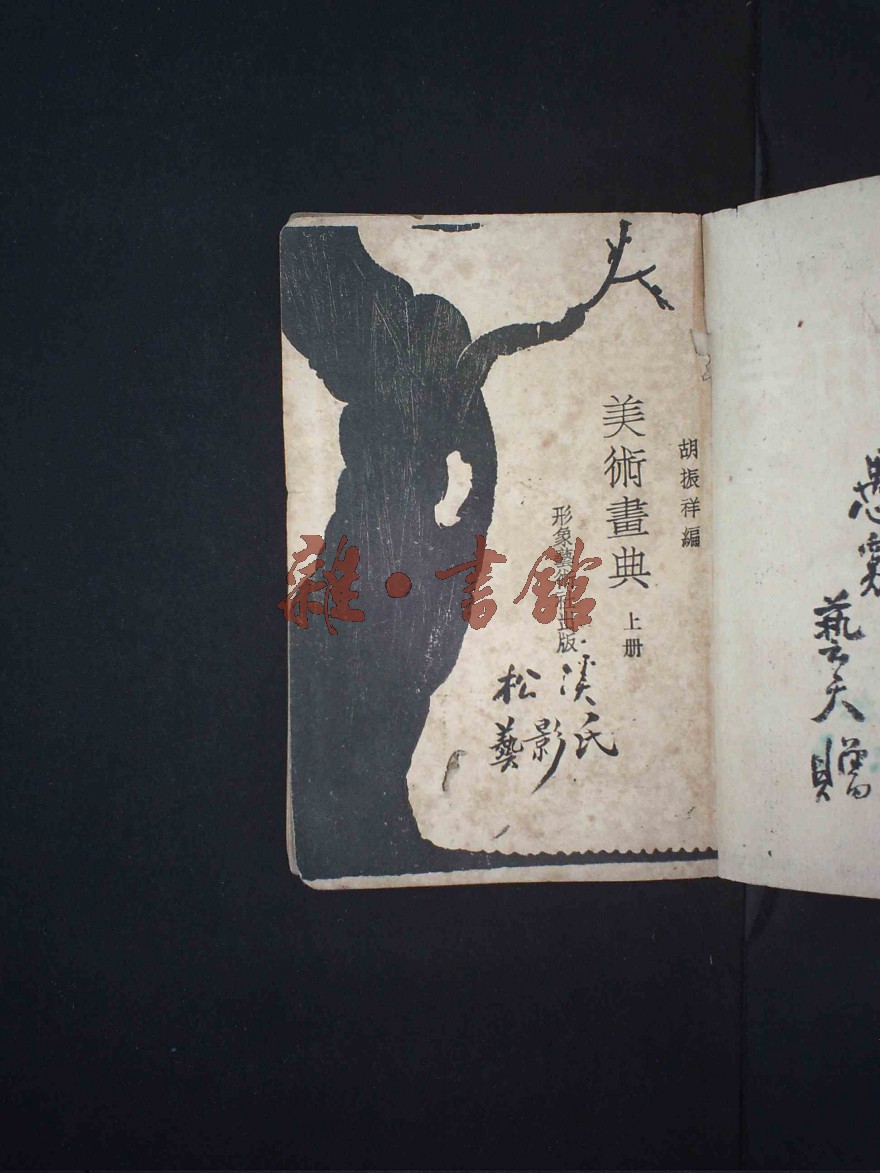 胡振祥編
美術畫典 上册
形象藝術社出版
溪氏
松影
藝
藝天贈
雜·書館